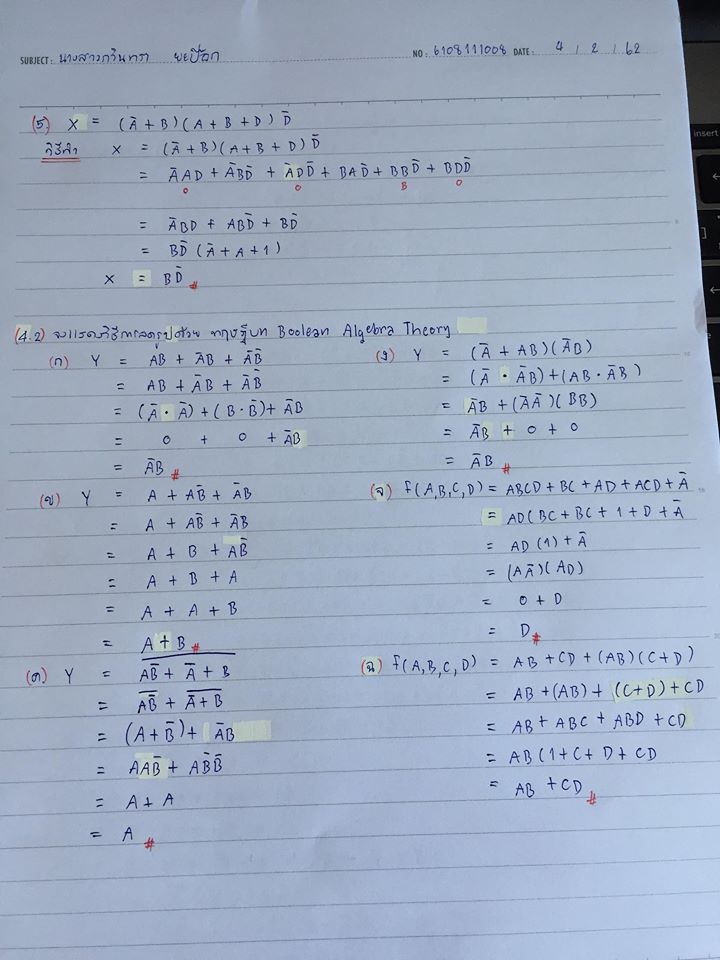 SUBJECT: นางสาวกวินทรา NO: 6108111008 DATE: 4 / 2 / 62
(5) X = (Ā + B)(A + B + D) D̄
วิธีทำ X = (Ā + B)(A + B + D) D̄
= ĀAD + ĀBD̄ + ĀDD̄ + BAD̄ + BBD̄ + BDD̄
0 0 B 0
= ĀBD + ABD̄ + BD̄
= BD̄ (Ā + A + 1)
X = BD̄ #
(4.2) จงแสดงวิธีการลดรูปด้วย ทฤษฎีบท Boolean Algebra Theory
(ก) Y = AB + ĀB + ĀB̄
= AB + ĀB + ĀB̄
= (Ā · Ā) + (B · B̄) + ĀB
= 0 + 0 + ĀB
= ĀB #
(ข) Y = A + AB̄ + ĀB
= A + AB̄ + ĀB
= A + B + AB̄
= A + B + A
= A + A + B
= A + B #
(ค) Y = AB̄ + Ā + B
= AB̄ + A + B
= (A + B̄) + ĀB
= AAB̄ + AB̄B̄
= A + A
= A #
(ง) Y = (Ā + AB)(ĀB)
= (Ā · ĀB) + (AB · ĀB)
= ĀB + (AĀ)(BB)
= ĀB + 0 + 0
= ĀB #
(จ) f(A,B,C,D) = ABCD + BC + AD + ACD + Ā
= AD(BC + BC + 1 + D + Ā
= AD (1) + Ā
= (AĀ)(AD)
= 0 + D
= D #
(ฉ) f(A,B,C,D) = AB + CD + (AB)(C + D)
= AB + (AB) + (C+D) + CD
= AB + ABC + ABD + CD
= AB (1 + C + D + CD
= AB + CD #
insert